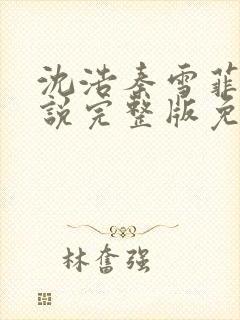 沈浩秦雪菲
說完整版免
林奮強